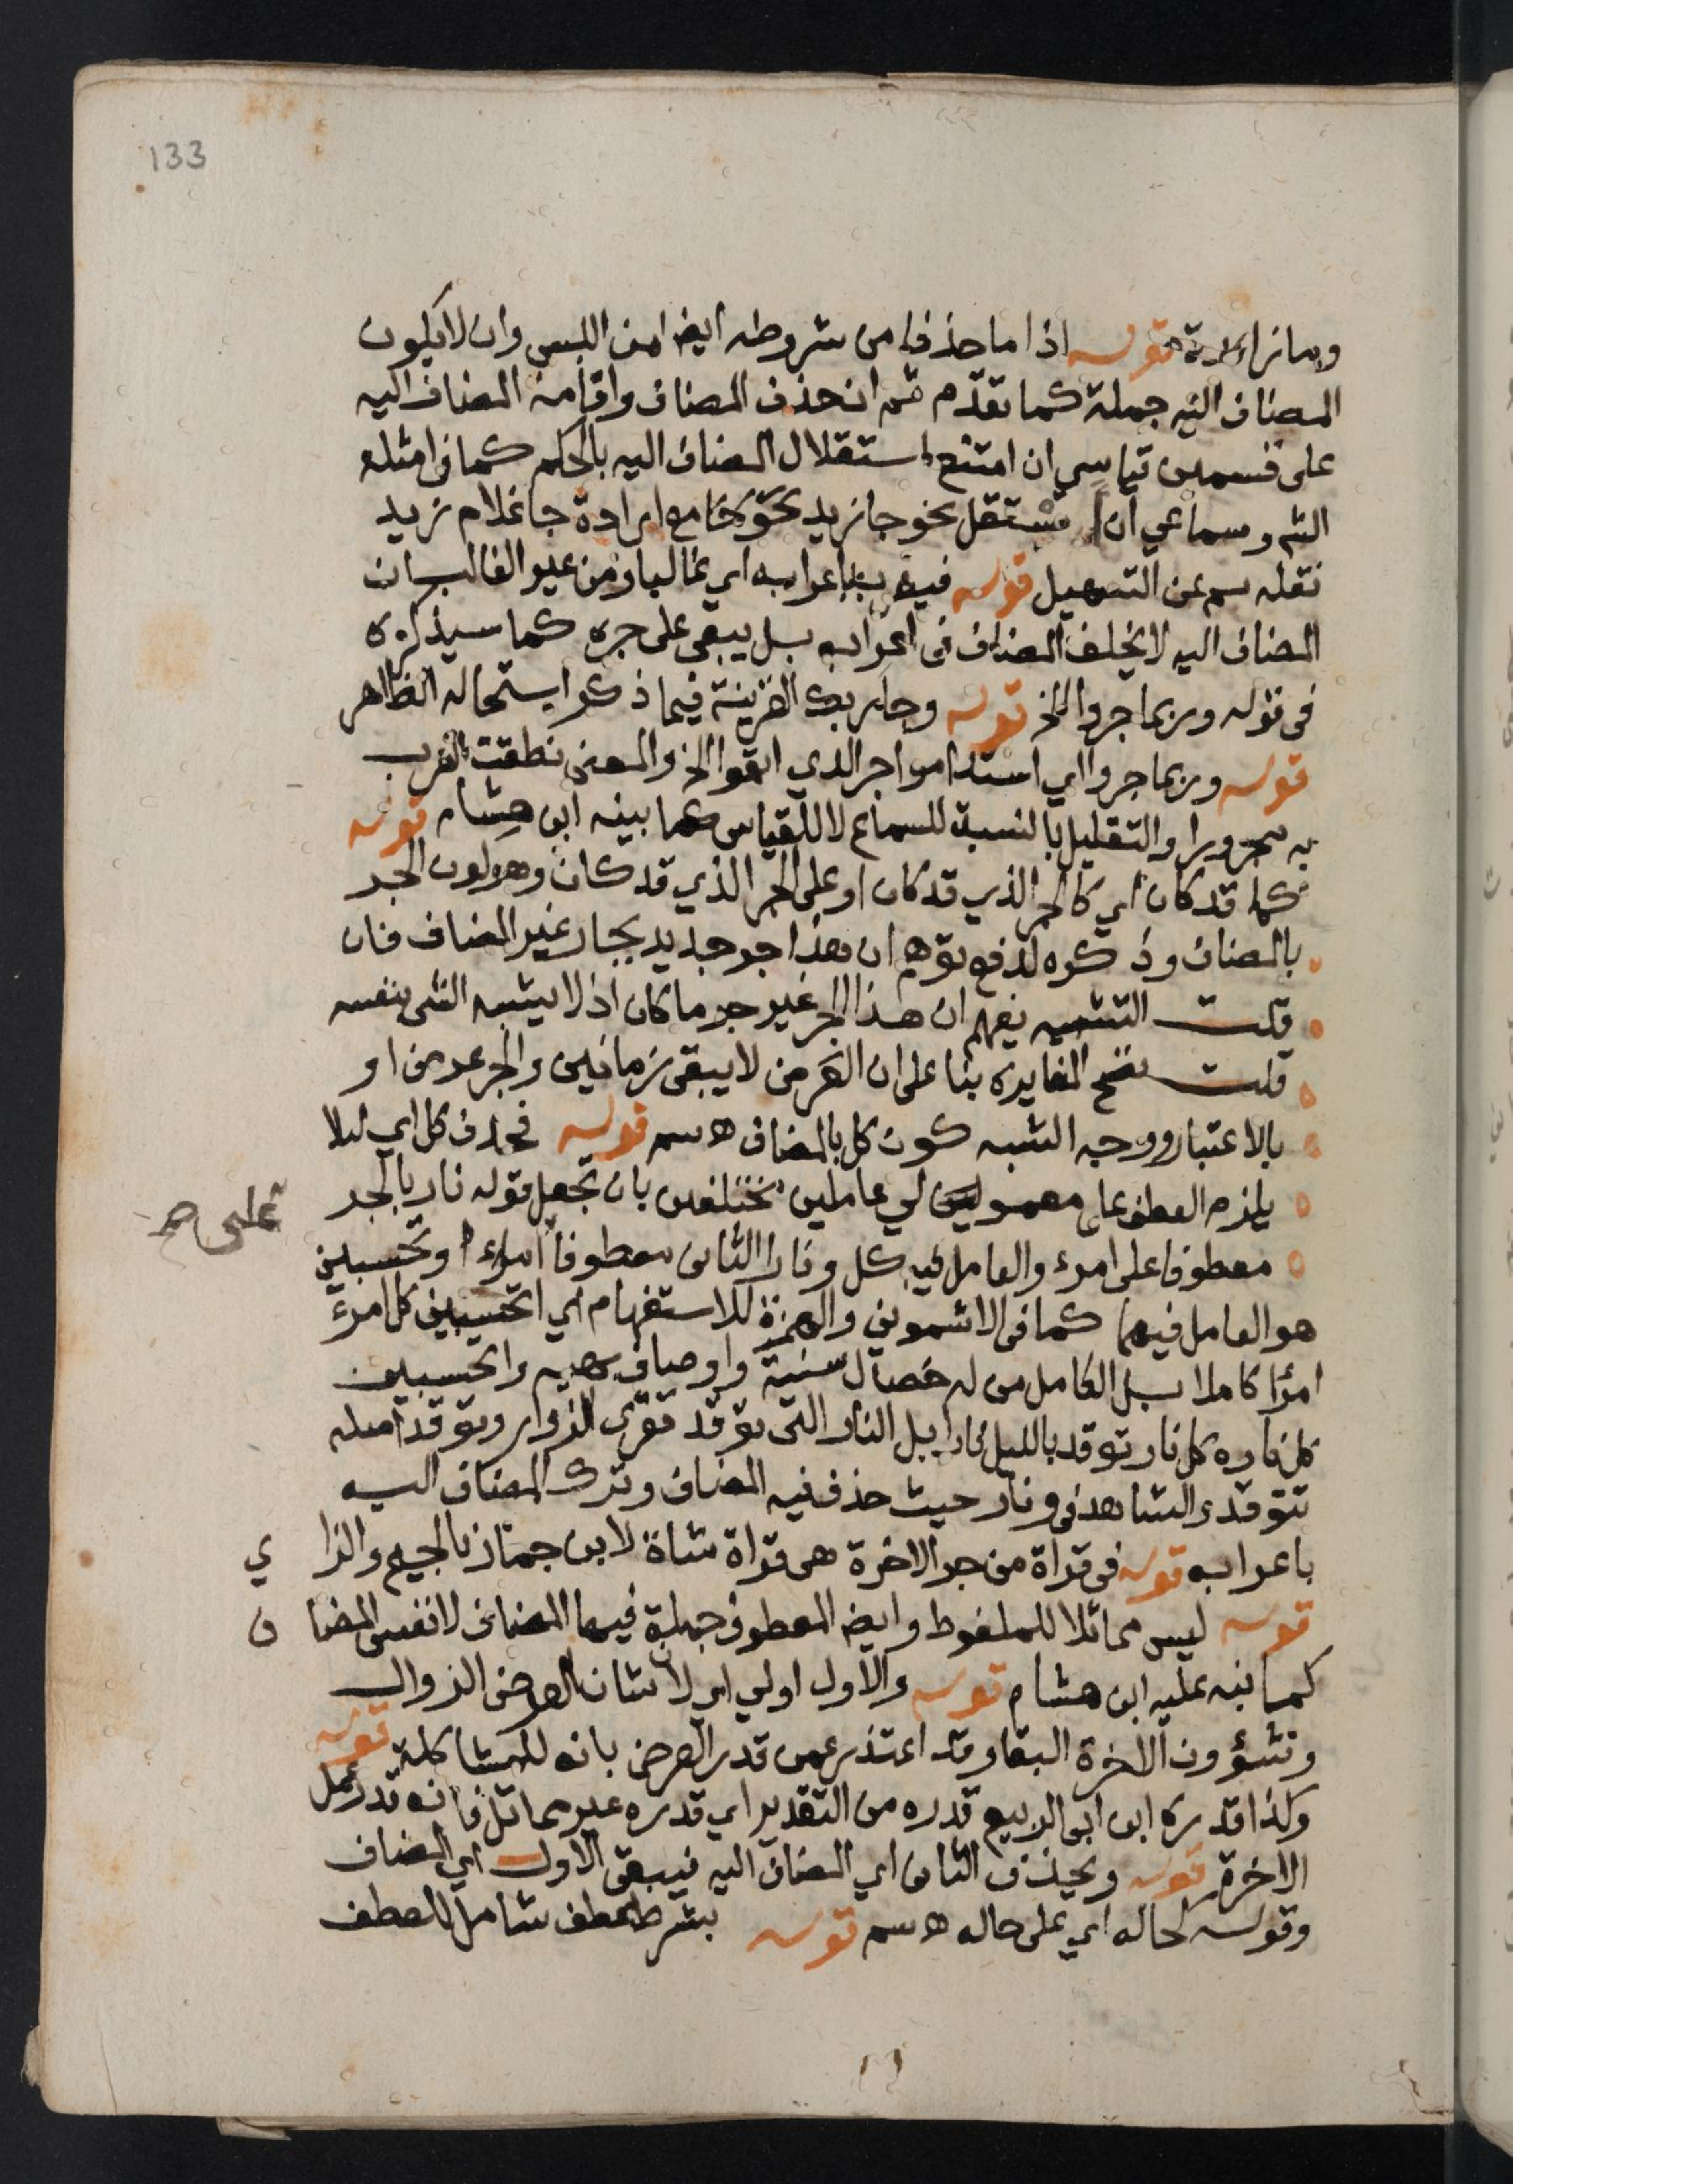 133
وما زائدة قوله اذا ما حذفا من شروطه ايض امن اللبس وان لا يكون
المضاف اليه جملة كما تقدم ثم ان حذف المضاف واقامة المضاف اليه
على قسمين قياسي ان امتنع استقلال المضاف اليه بالحكم كما في امثلة
الش وسماعي ان استقل نحو جا زيد مع ارادة جا غلام زيد
نقله سم عن التسهيل قوله في باعرابه اي غالبا ومن غير الغالب ان
المضاف اليه لا يخلف المضاف في اعرابه بل يبقى على جره كما سيذكره
في قوله وربما جروا الخ قوله وجا ربك القرينة فيما ذكر استحالة الظاهر
قوله وربما جروا اي استداموا جر الذي ابقوا الخ والمعنى نطقت العرب
به مجرورا والتقليل بالنسبة للسماع لا للقياس كما بينه ابن هشام قوله
كما قد كان اي كالجر الذي قد كان او على الجر الذي قد كان وهو كون الجر
بالمضاف وذكره لدفع توهم ان هذا جر جديد بجار غير المضاف فان
قلت التشبيه يفهم ان هذا الجر غير جر ما كان اذ لا يشبه الشي بنفسه
قلت تصح المغايرة بنا على ان العرض لا يبقى زمانين والجر عرض او
بالاعتبار ووجه الشبه كون كل بالمضاف ه سم قوله فحذف كل اي لئلا
يلزم العطف على معمولين لي عاملين مختلفين بان تجعل قوله نار بالجر
معطوفا على امرء والعامل فيه كل ونارا الثاني معطوفا امراء وتحسبين
على صح
هو العامل فيهما كما في الاشموني والهمزة للاستفهام اي اتحسبين كل امرء
امرؤا كاملا بل الكامل من له خصال سنية واوصاف بهية واتحسبين
كل ناره كل نار توقد بالليل نارا بل النار التي توقد لقرى الزوار وتوقد اصله
تتوقد والشاهد في ونار حيث حذف فيه المضاف وترك المضاف اليه
باعرابه قوله في قراة من جر الاخرة هي قراة شاذة لابن جماز بالجيم والزا ي
قوله ليس مماثلا للملفوظ وايض المعطوف جملة فيها المضاف لا نفس المضا ف
كما نبه عليه ابن هشام قوله والاول اولي اي لان شان العرض الزوال
وشؤون الاخرة البقا وقد اعتذر عمن قدر العرض بانه للمشاكلة قوله
وكذا قدره ابن ابي الربيع قدره من التقدير اي قدره غير مماثل فانه قدر عمل
الاخرة قوله ويحذف الثاني اي المضاف اليه فيبقى الاول اي المضاف
وقوله كحاله اي على حاله ه سم قوله بشرط عطف شامل للعطف